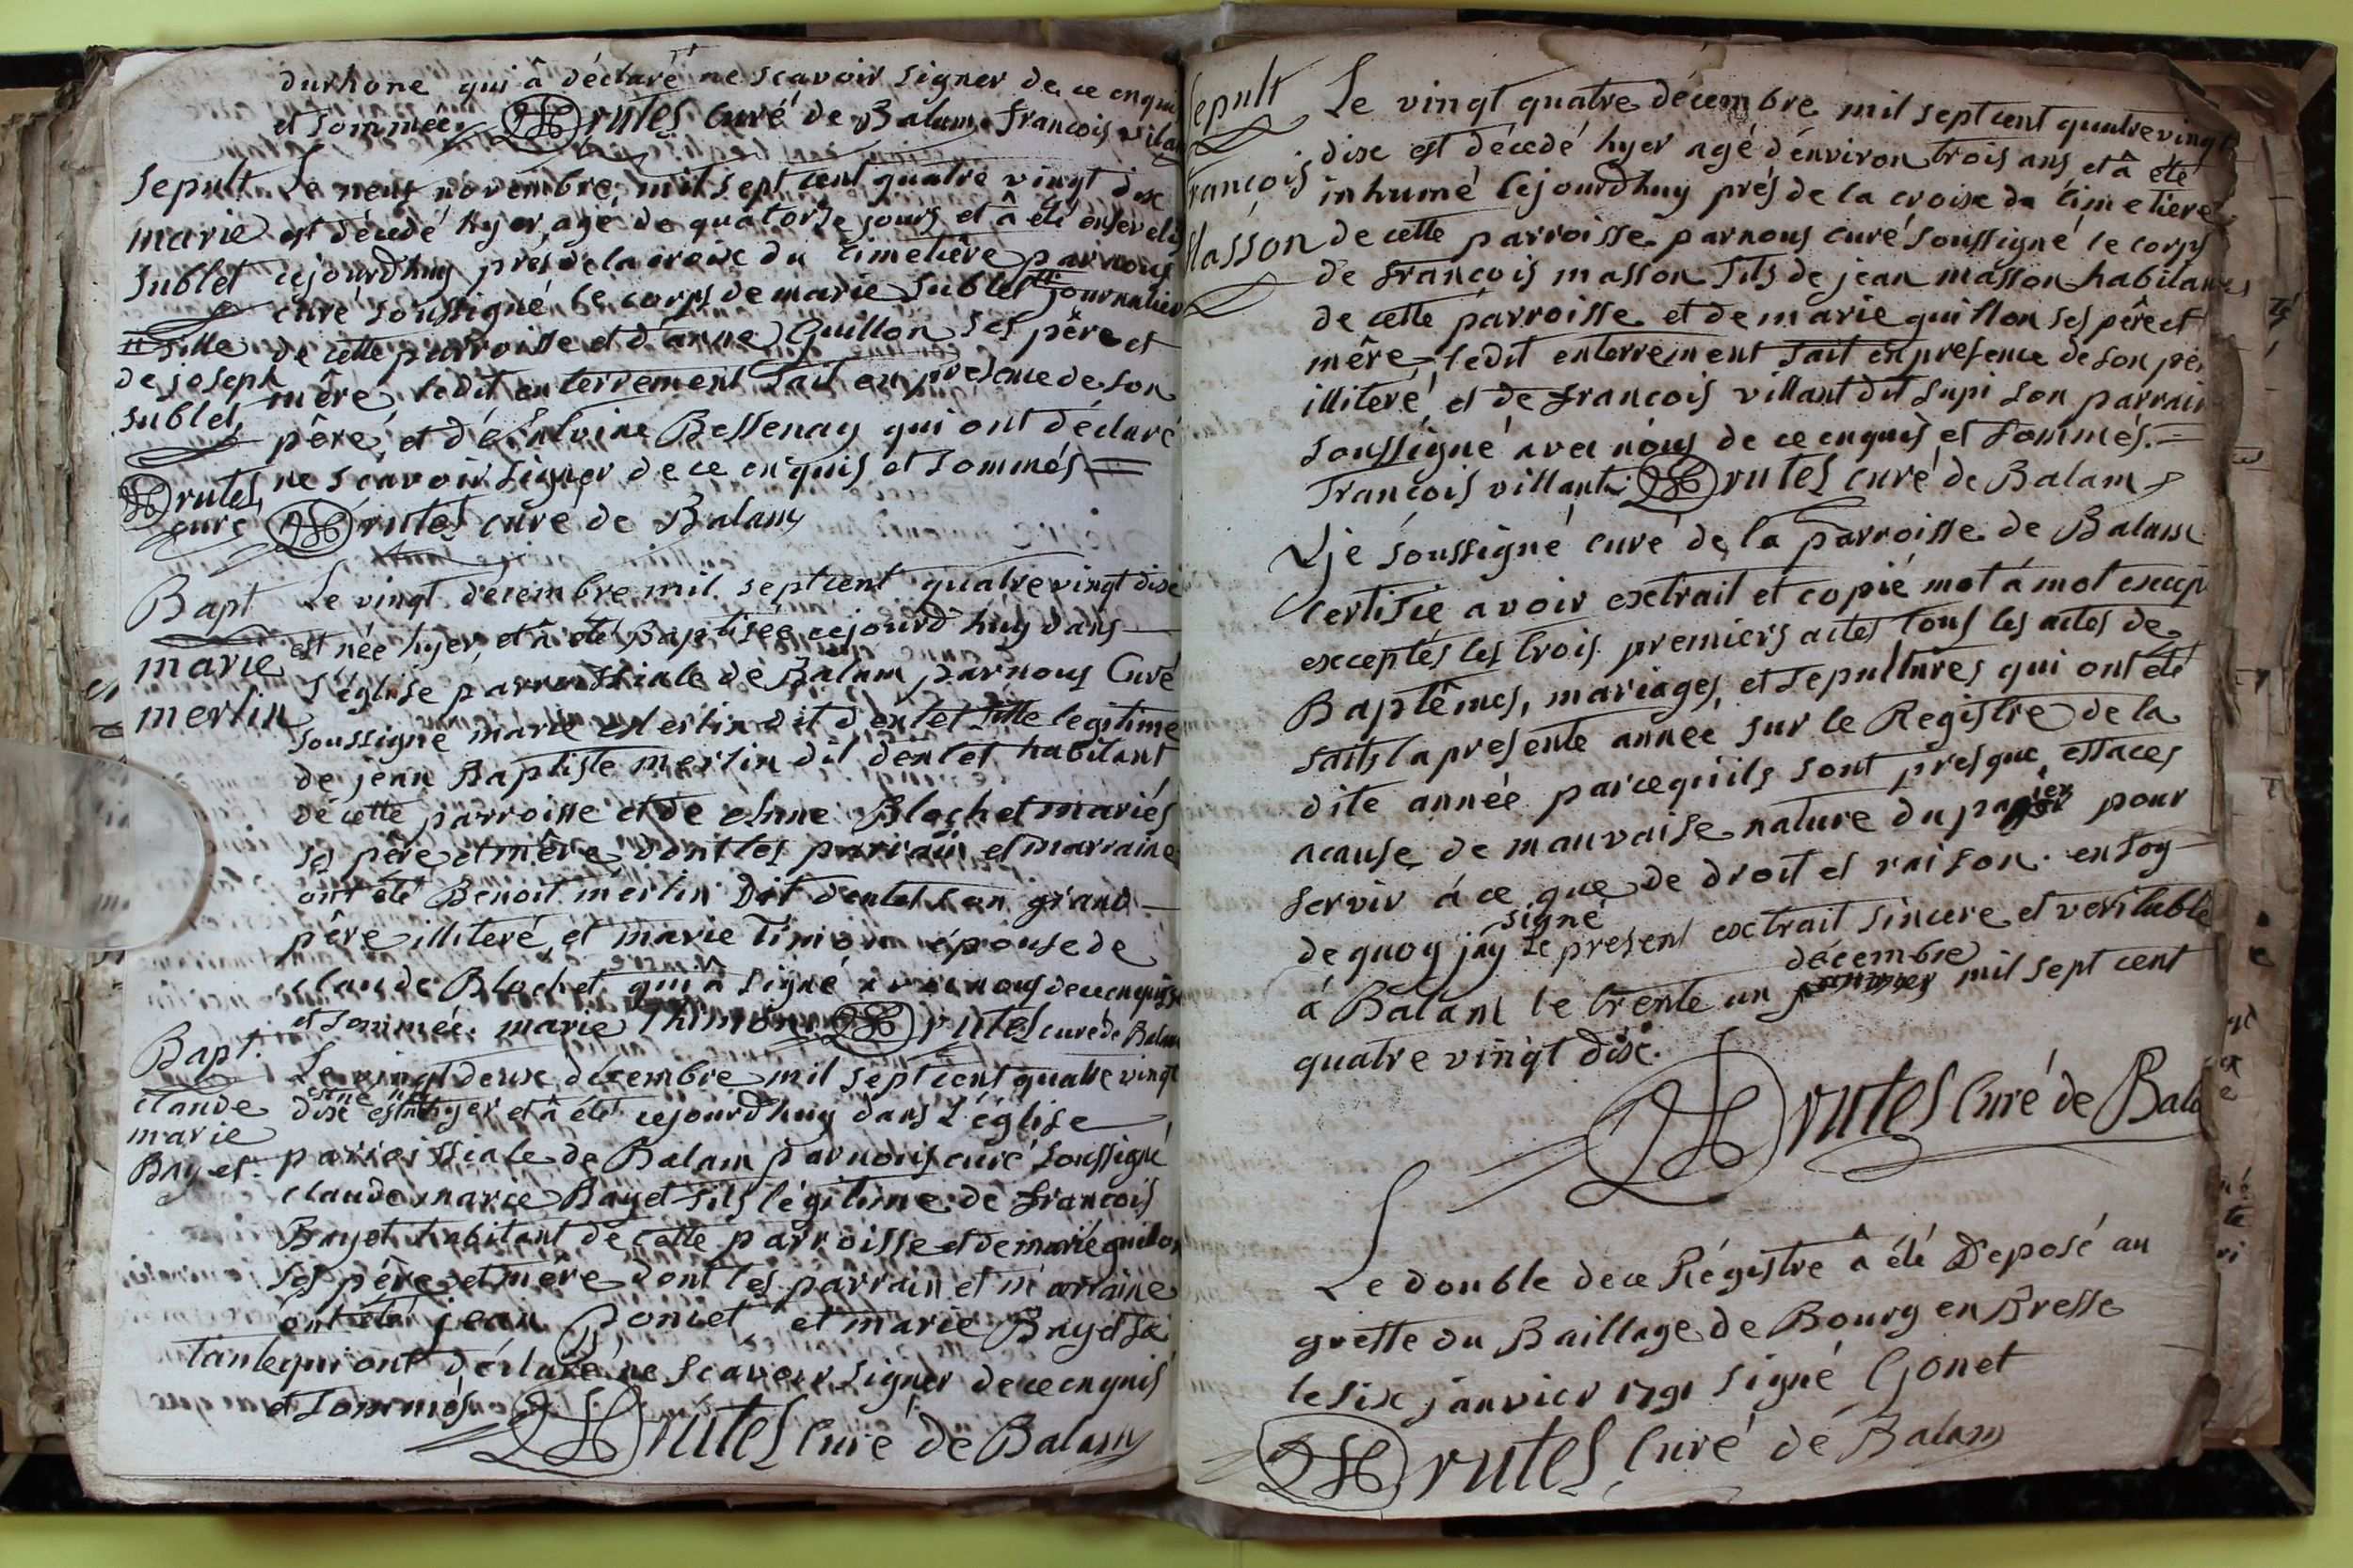 durhone qui â déclaré ne scavoir signer de ce enqui
et sommée. Drutel curé de Balam francois vilan
Sepult Le neuf novembre, mil sept cent quatre vingt dix
marie est décédé hyer, agé de quatorse jours et â été enseveli
sublet cejourdhuy prés de la croix du cimetière par nous
curé soussigné le corps de marie sublet journalier
fille de cette parroisse et d'anne Guillon ses pére et
de joseph mère, ledit enterrement fait en presence de son
sublet, père, et d'Antoine Bessenay qui ont déclaré
Drutel ne scavoir signer de ce enquis et sommés =
curé Drutel curé de Balam
Bapt Le vingt décembre mil sept cent quatre vingt dix
est née hyer, et â été Baptisée cejourd'huy dans
marie l'église parroissiale de Balam par nous Curé
merlin soussigné marie merlin dit dentet fille legitime
de jean Baptiste merlin dit dentet habitant
de cette parroisse et de Anne Blochet mariés
ses père et mère dont les parrain et marraine
ont été Benoit merlin Dit dentet son grand
père illiteré, et marie Timon épouse de
claude Blochet qui â signé avec nous de ce enquise
et sommée. marie Thimon Drutel curé de Balam
Bapt. Le vingt deux décembre mil sept cent quatre vingt
claude dix est né hyer et â été cejourdhuy dans L'église
marie parroissiale de Balam par nous curé soussigné
Bayet. claude marie Bayet fils légitime de francois
Bayet habitant de cette parroisse et de marie guillon
ses père et mère dont les parrain et marraine
ont été jean Poncet et marie Bayet sa
tante qui ont déclaré ne scavoir signer de ce enquis
et sommés Drutel Curé de Balam
Sepult Le vingt quatre décembre mil sept cent quatre vingt
dix est décedé hyer agé d'environ trois ans et â été
francois inhumé lejourdhuy prés de la croix du cimetiere
Masson de cette parroisse par nous curé soussigné le corps
de francois masson fils de jean masson habitant
de cette parroisse et de marie guillon ses père et
mère, ledit enterrement fait en presence de son per
illiteré, et de francois villant dit supi son parrain
soussigné avec nous de ce enquis et sommés. =
francois villant Drutel curé de Balam
je soussigné curé de la parroisse de Balam
certifie avoir extrait et copié mot á mot excep
exceptés les trois premiers actes tous les actes de
Baptêmes, mariages, et sepultures qui ont été
faits la presente année sur le Registre de la
dite année parcequ'ils sont presque effacés
acause de mauvaise nature du papier pour
servir á ce que de droit et raison. en foy
de quoy jay signé le present extrait sincere et veritable
á Balam le trente un décembre mil sept cent
quatre vingt dix.
Drutel Curé de Bala
Le double de ce Régistre â été Deposé au
greffe du Baillage de Bourg en Bresse
le six janvier 1791 signé Gonet
Drutel Curé de Balam